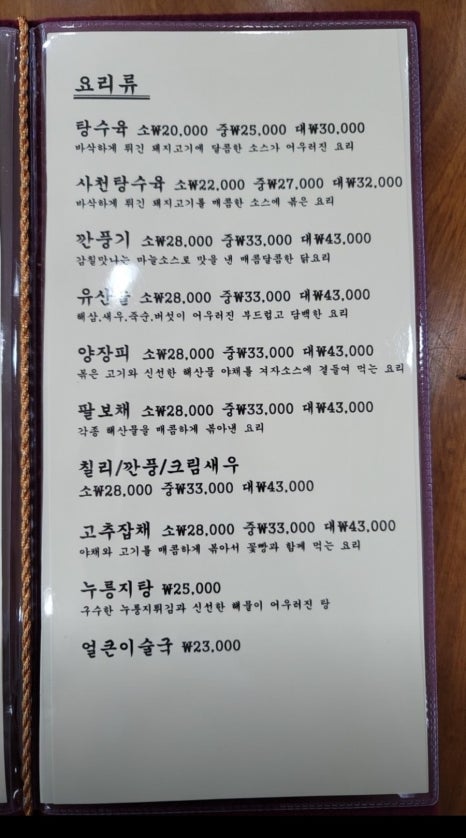 요리류
탕수육 소₩20,000 중₩25,000 대₩30,000
바삭하게 튀긴 돼지고기에 달콤한 소스가 어우러진 요리
사천탕수육 소₩22,000 중₩27,000 대₩32,000
바삭하게 튀긴 돼지고기를 매콤한 소스에 볶은 요리
깐풍기 소₩28,000 중₩33,000 대₩43,000
감칠맛나는 마늘소스로 맛을 낸 매콤달콤한 닭요리
유산슬 소₩28,000 중₩33,000 대₩43,000
해삼.새우.죽순.버섯이 어우러진 부드럽고 담백한 요리
양장피 소₩28,000 중₩33,000 대₩43,000
볶은 고기와 신선한 해산물 야채를 겨자소스에 곁들여 먹는 요리
팔보채 소₩28,000 중₩33,000 대₩43,000
각종 해산물을 매콤하게 볶아낸 요리
칠리/깐풍/크림새우
소₩28,000 중₩33,000 대₩43,000
고추잡채 소₩28,000 중₩33,000 대₩43,000
야채와 고기를 매콤하게 볶아서 꽃빵과 함께 먹는 요리
누룽지탕 ₩25,000
구수한 누룽지튀김과 신선한 해물이 어우러진 탕
얼큰이술국 ₩23,000